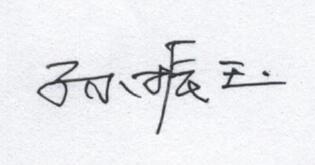 孙振玉